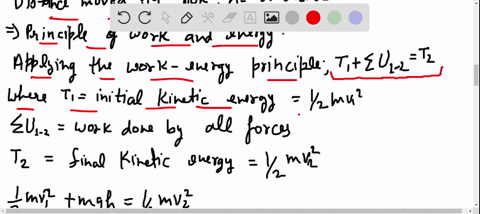 Distance moved
=> Principle of work and energy.
Applying the work-energy principle; T1+ΣU1-2=T2
where T1=initial kinetic energy = 1/2 mv1²
ΣU1-2 = work done by all forces
T2 = final kinetic energy = 1/2 mv2²
1/2 mv1² + mgh = 1/2 mv2²